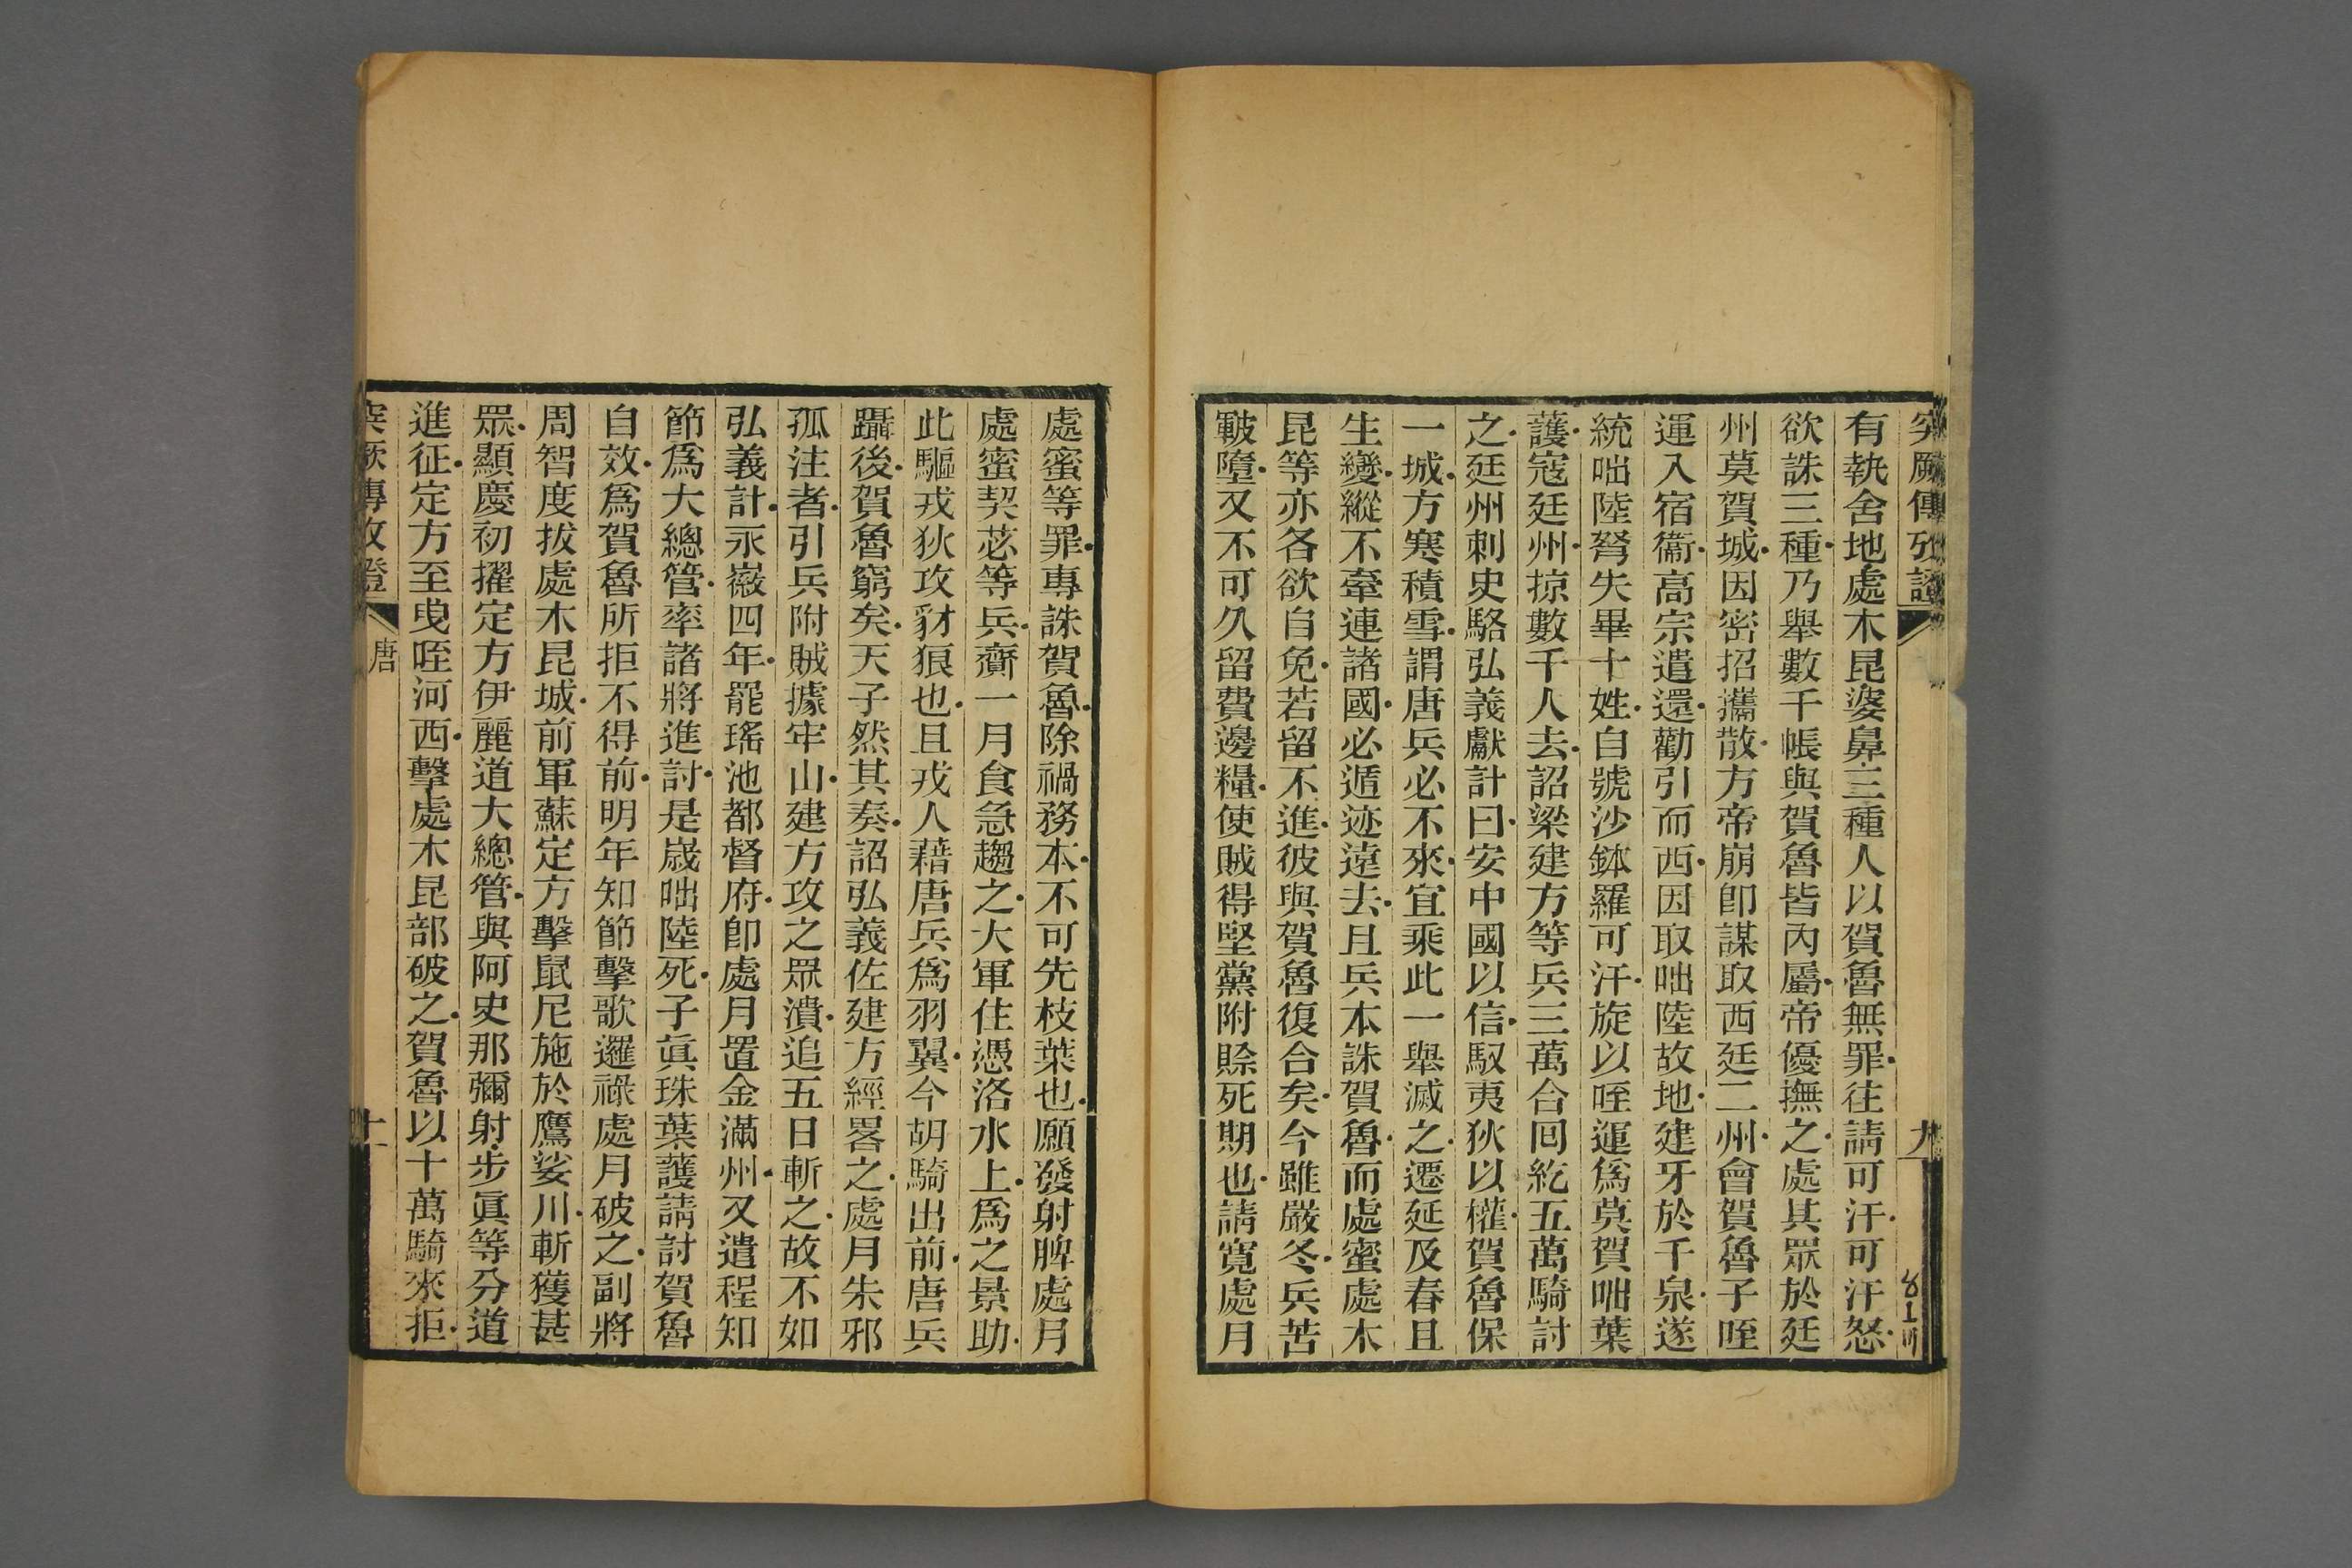 突厥傳攷證
九
有執舍地處木昆婆鼻三種人以賀魯無罪往請可汗可汗怒
欲誅三種乃舉數千帳與賀魯皆內屬帝優撫之處其眾於廷
州莫賀城因密招攜散方帝崩卽謀取西廷二州會賀魯子咥
運入宿衞高宗遣還勸引而西因取咄陸故地建牙於千泉遂
統咄陸弩失畢十姓自號沙鉢羅可汗旋以咥運爲莫賀咄葉
護寇廷州掠數千人去詔梁建方等兵三萬合回紇五萬騎討
之廷州刺史駱弘義獻計曰安中國以信馭夷狄以權賀魯保
一城方寒積雪謂唐兵必不來宜乘此一舉滅之遷延及春且
生變縱不牽連諸國必遁迹遠去且兵本誅賀魯而處蜜處木
昆等亦各欲自免若留不進彼與賀魯復合矣今雖嚴冬兵苦
皸墮又不可久留費邊糧使賊得堅黨附賒死期也請寬處月
處蜜等罪專誅賀魯除禍務本不可先枝葉也願發射脾處月
處蜜契苾等兵齎一月食急趨之大軍住憑洛水上爲之景助
此驅戎狄攻豺狼也且戎人藉唐兵爲羽翼今胡騎出前唐兵
躡後賀魯窮矣天子然其奏詔弘義佐建方經畧之處月朱邪
孤注者引兵附賊據牢山建方攻之眾潰追五日斬之故不如
弘義計永徽四年罷瑤池都督府卽處月置金滿州又遣程知
節爲大總管率諸將進討是歲咄陸死子眞珠葉護請討賀魯
自效爲賀魯所拒不得前明年知節擊歌邏祿處月破之副將
周智度拔處木昆城前軍蘇定方擊鼠尼施於鷹娑川斬獲甚
眾顯慶初擢定方伊麗道大總管與阿史那彌射步眞等分道
進征定方至曳咥河西擊處木昆部破之賀魯以十萬騎來拒
突厥傳攷證
唐
十一